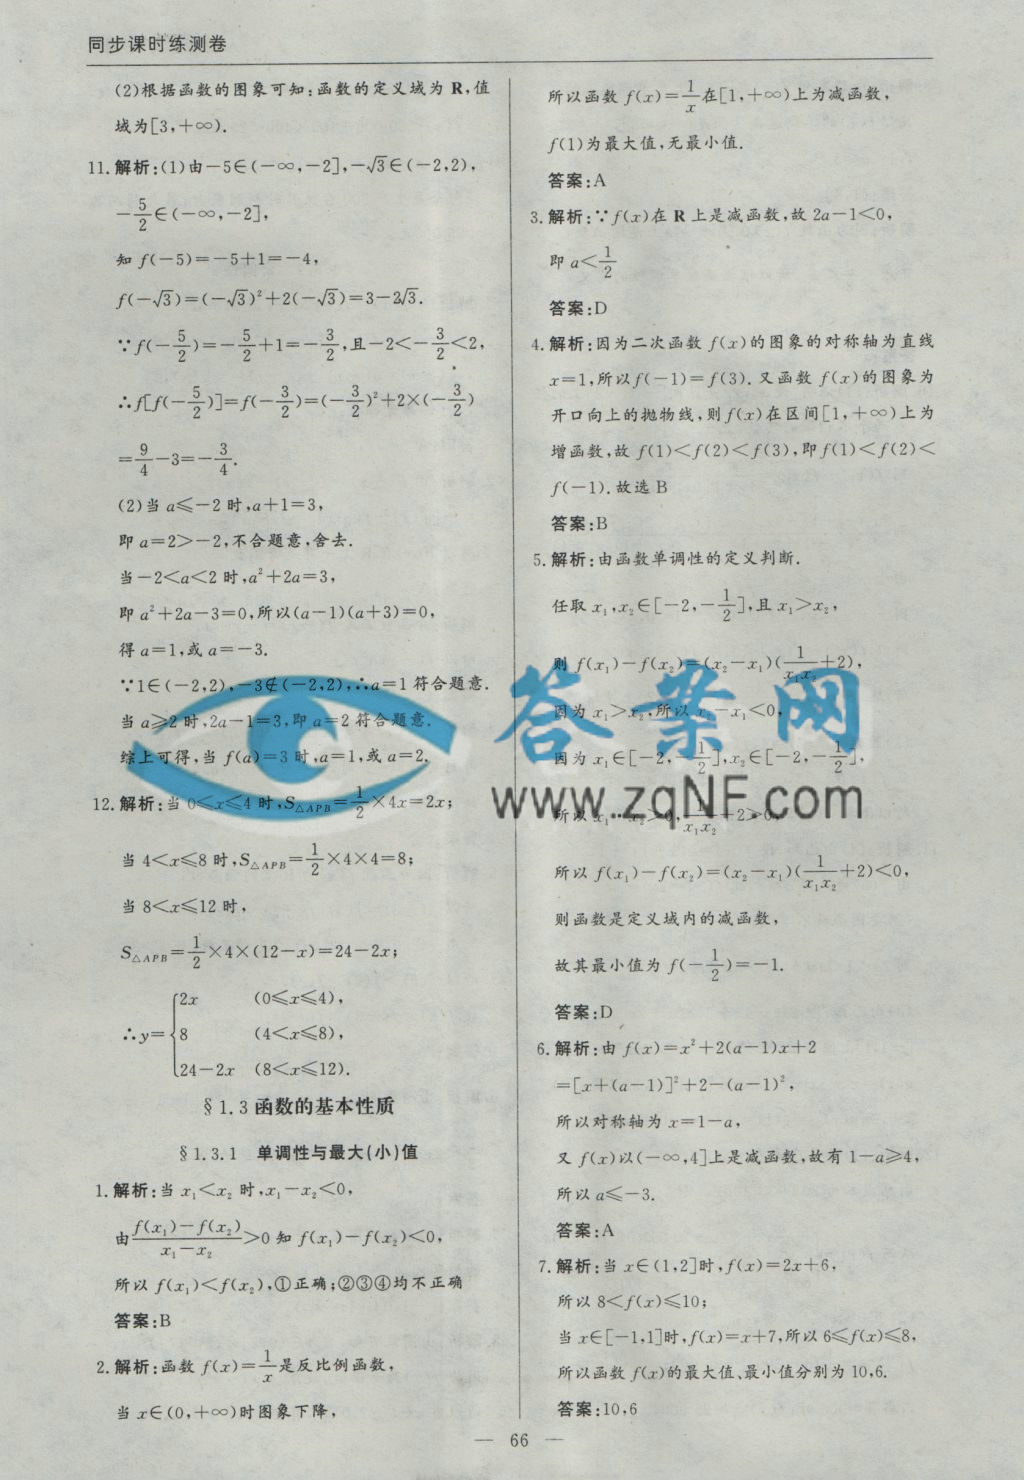 同步课时练测卷
(2)根据函数的图象可知:函数的定义域为 R,值
域为[3,+∞).
11.解析:(1)由-5∈(-∞,-2],-√3∈(-2,2),
-5/2∈(-∞,-2],
知 f(-5)=-5+1=-4,
f(-√3)=(-√3)²+2(-√3)=3-2√3.
∵f(-5/2)=-5/2+1=-3/2,且-2<-3/2<2,
∴f[f(-5/2)]=f(-3/2)=(-3/2)²+2×(-3/2)
=9/4-3=-3/4.
(2)当 a≤-2 时,a+1=3,
即 a=2>-2,不合题意,舍去.
当-2<a<2 时,a²+2a=3,
即 a²+2a-3=0,所以(a-1)(a+3)=0,
得 a=1,或 a=-3.
∵1∈(-2,2),-3∉(-2,2),∴a=1 符合题意.
当 a≥2 时,2a-1=3,即 a=2 符合题意.
综上可得,当 f(a)=3 时,a=1,或 a=2.
12.解析:当 0≤x≤4 时,S△APB=1/2×4x=2x;
当 4<x≤8 时,S△APB=1/2×4×4=8;
当 8<x≤12 时,
S△APB=1/2×4×(12-x)=24-2x;
∴y={2x (0≤x≤4),
8 (4<x≤8),
24-2x (8<x≤12).
§1.3 函数的基本性质
§1.3.1 单调性与最大(小)值
1.解析:当 x₁<x₂ 时,x₁-x₂<0,
由 f(x₁)-f(x₂)/x₁-x₂>0 知 f(x₁)-f(x₂)<0,
所以 f(x₁)<f(x₂),①正确;②③④均不正确
答案:B
2.解析:函数 f(x)=1/x是反比例函数,
当 x∈(0,+∞)时图象下降,
所以函数 f(x)=1/x在[1,+∞)上为减函数,
f(1)为最大值,无最小值.
答案:A
3.解析:∵f(x)在 R 上是减函数,故 2a-1<0,
即 a<1/2
答案:D
4.解析:因为二次函数 f(x)的图象的对称轴为直线
x=1,所以 f(-1)=f(3).又函数 f(x)的图象为
开口向上的抛物线,则 f(x)在区间[1,+∞)上为
增函数,故 f(1)<f(2)<f(3),即 f(1)<f(2)<
f(-1).故选 B
答案:B
5.解析:由函数单调性的定义判断.
任取 x₁,x₂∈[-2,-1/2],且 x₁>x₂,
则 f(x₁)-f(x₂)=(x₂-x₁)(1/x₁x₂+2),
因为 x₁>x₂,所以 x₂-x₁<0,
因为 x₁∈[-2,-1/2],x₂∈[-2,-1/2],
所以 x₁·x₂>0,1/x₁x₂+2>0,
所以 f(x₁)-f(x₂)=(x₂-x₁)(1/x₁x₂+2)<0,
则函数是定义域内的减函数,
故其最小值为 f(-1/2)=-1.
答案:D
6.解析:由 f(x)=x²+2(a-1)x+2
=[x+(a-1)]²+2-(a-1)²,
所以对称轴为 x=1-a,
又 f(x)以(-∞,4]上是减函数,故有 1-a≥4,
所以 a≤-3.
答案:A
7.解析:当 x∈(1,2]时,f(x)=2x+6,
所以 8<f(x)≤10;
当 x∈[-1,1]时,f(x)=x+7,所以 6≤f(x)≤8,
所以函数 f(x)的最大值、最小值分别为 10,6.
答案:10,6
答案网
www.zqNF.com
— 66 —